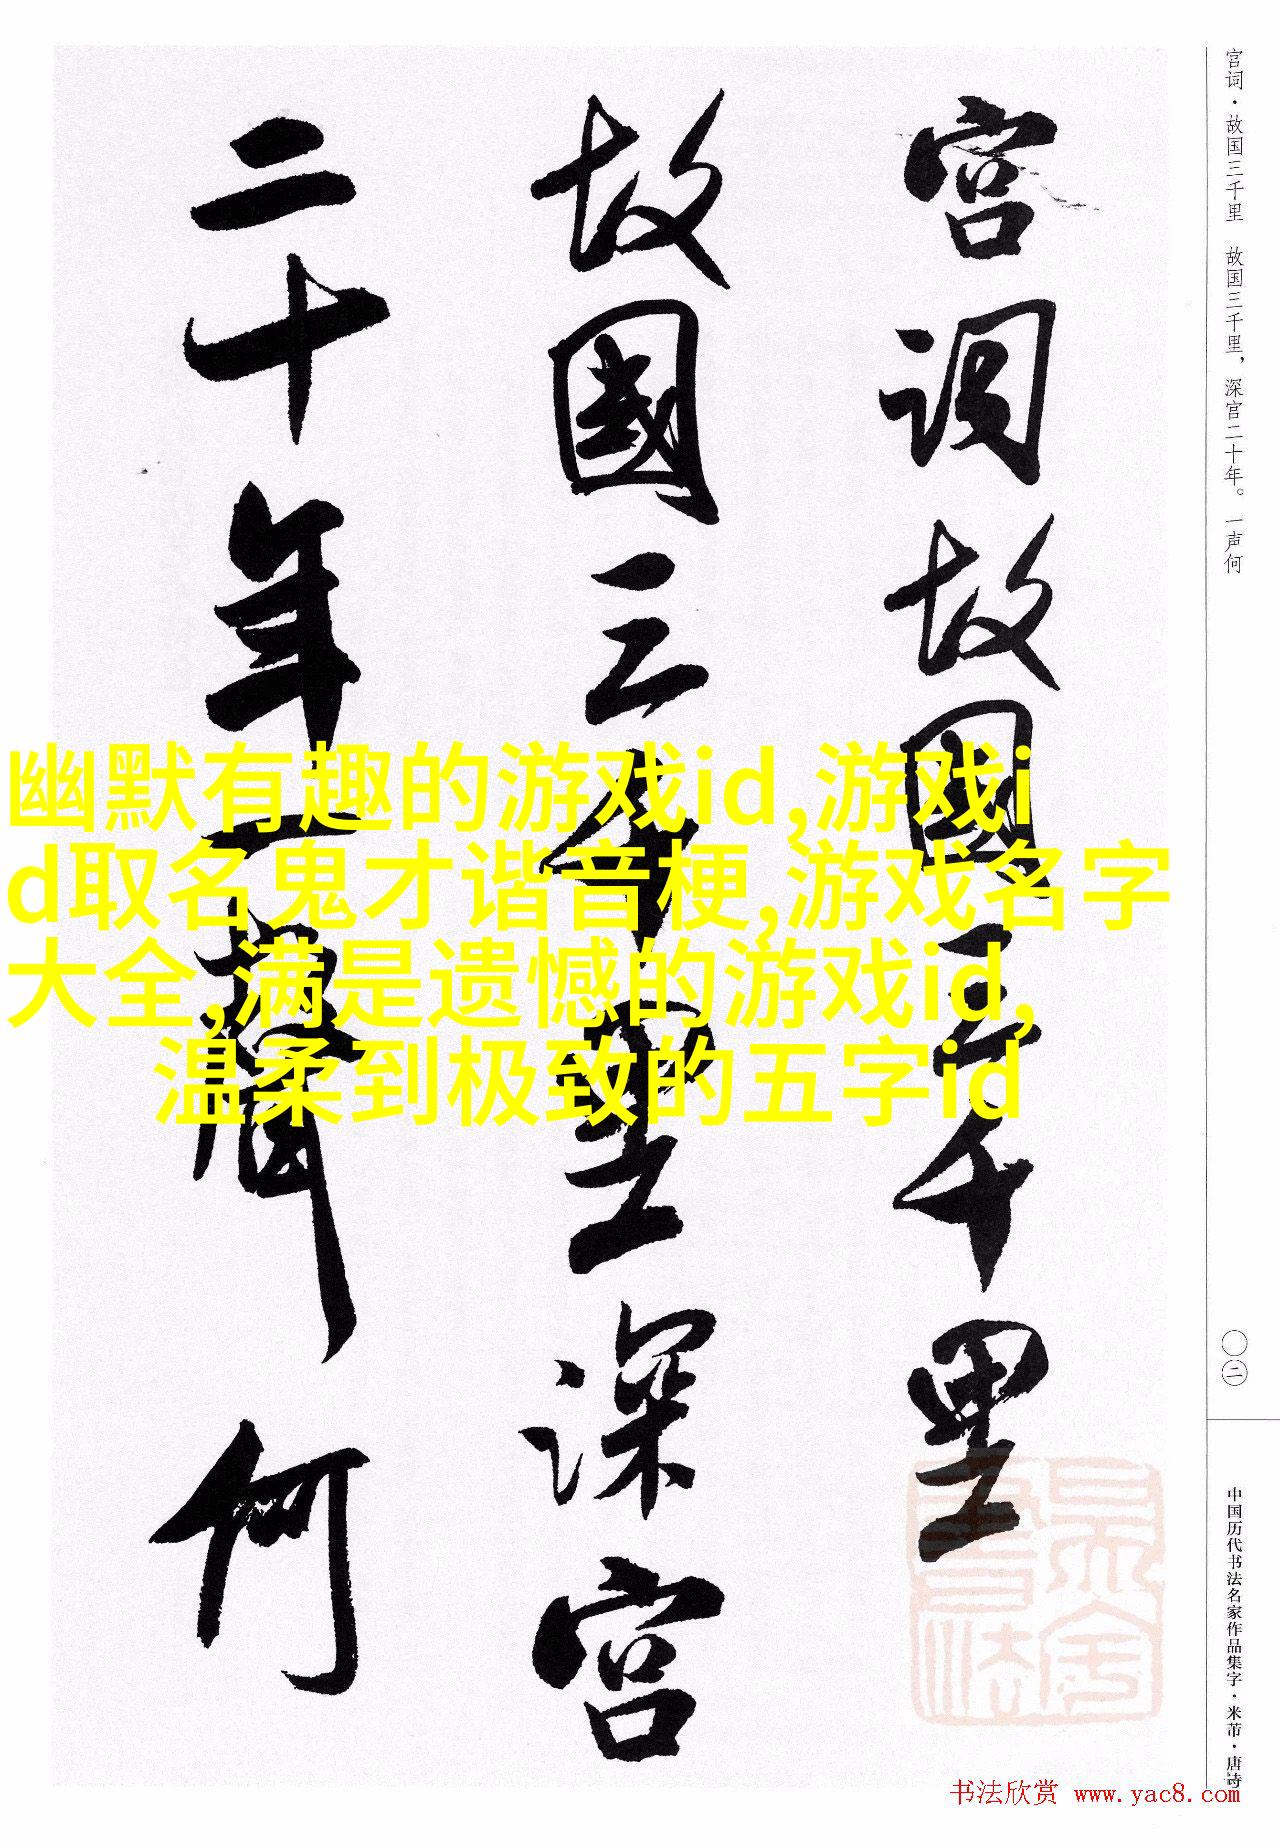 宫词·故国三千里　故国三千里，深宫二十年。一声何
宫词故國三千里
故國三千里深宫
二十年一聲何
幽默有趣的游戏id,游戏i
d取名鬼才谐音梗,游戏名字
大全,满是遗憾的游戏id,
温柔到极致的五字id
〇二
中国历代书法名家作品集字·米芾·唐诗
书法欣赏 www.yac8.com